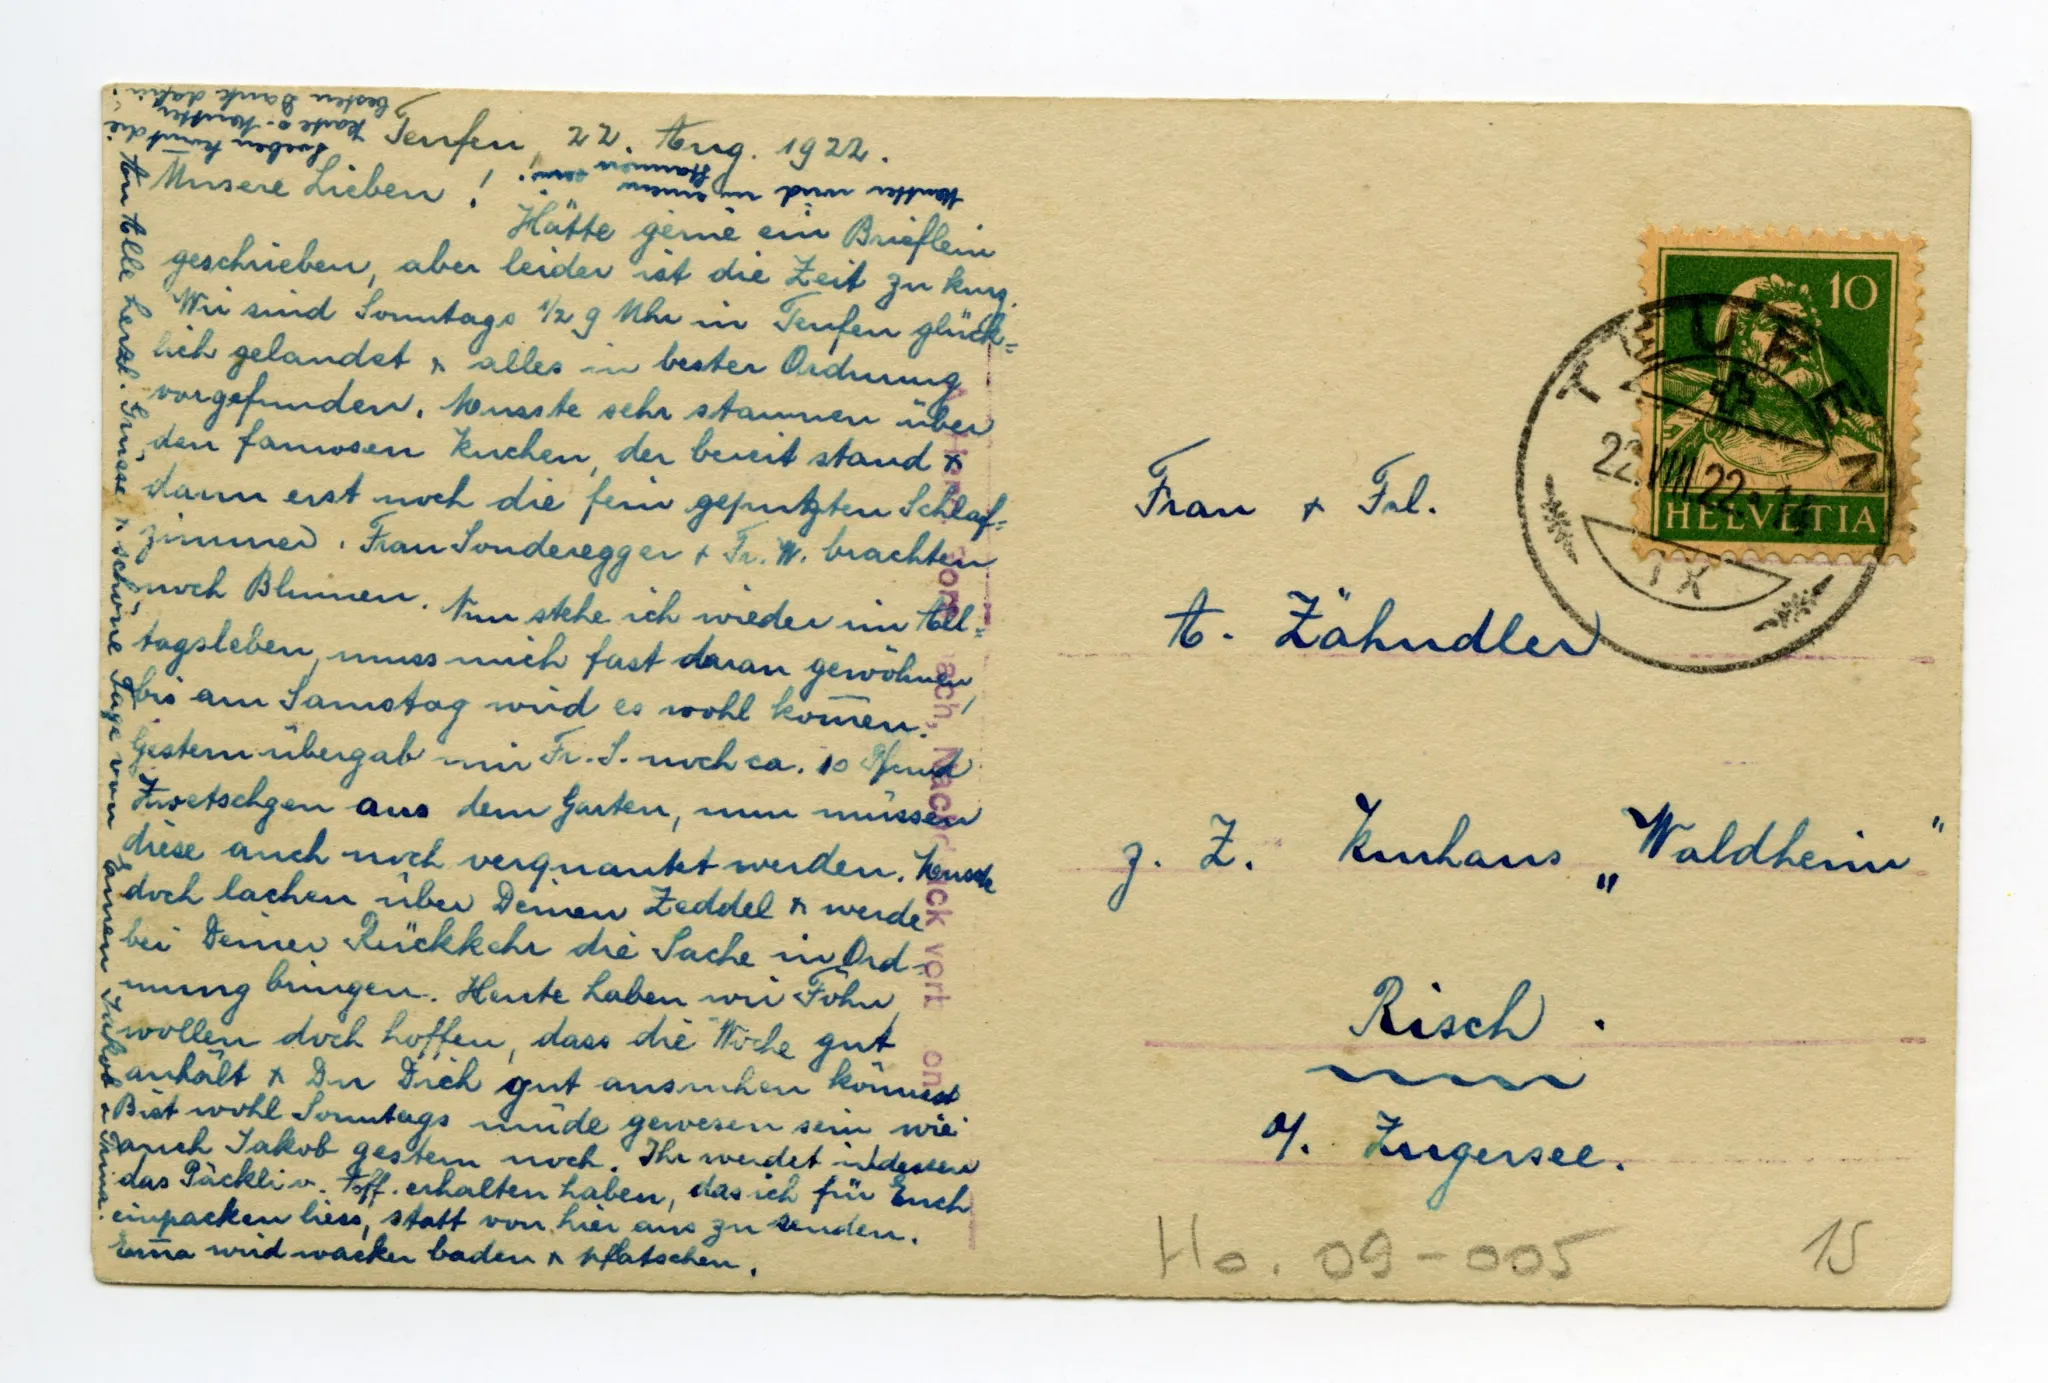 Teufen, 22. Aug. 1922.
Unsere Lieben!
Hätte gerne ein Brieflein
geschrieben, aber leider ist die Zeit zu kurz.
Wir sind Sonntags 1/2 9 Uhr in Teufen glück=
lich gelandet + alles in bester Ordnung
vorgefunden. Musste sehr staunen über
den famosen Kuchen, der bereit stand +
dann erst noch die fein geputzten Schlaf=
zimmer. Frau Sonderegger + Fr. W. brachten
noch Blumen. Nun stehe ich wieder im All=
tagsleben, muss mich fast daran gewöhnen,
bis am Samstag wird es wohl kom̅en.
Gestern übergab mir Fr. S. noch ca. 10 Pfund
Zwetschgen aus dem Garten, nun müssen
diese auch noch verquantet werden. Musste
doch lachen über Deinen Zeddel + werde
bei Deiner Rückkehr die Sache in Ord=
nung bringen. Heute haben wir Föhn,
wollen doch hoffen, dass die Woche gut
anhält + Du Dich gut ausruhen könnest
Bist wohl Sonntags müde gewesen sein wie
auch Jakob gestern noch. Ihr werdet indessen
das Päckli v. Hoff. erhalten haben, das ich für Euch
einpacken liess, statt von hier aus zu senden.
Em̅a wird wacker baden + pflatschen.
An Alle herzl. Grüsse + schöne Tage von Euren Jakob + Irma.
Soeben kom̅t die
Karte v. Mutter
besten Dank dafür.
Mutter wird in einem
Staunen sein!
Frau + Frl.
A. Zähndler
z. Z. Kurhaus „Waldheim"
Risch.
a/. Zugersee.
10
HELVETIA
TEUFEN
22.VIII.22.-14
IX
Nach
Ho. 09-005
15